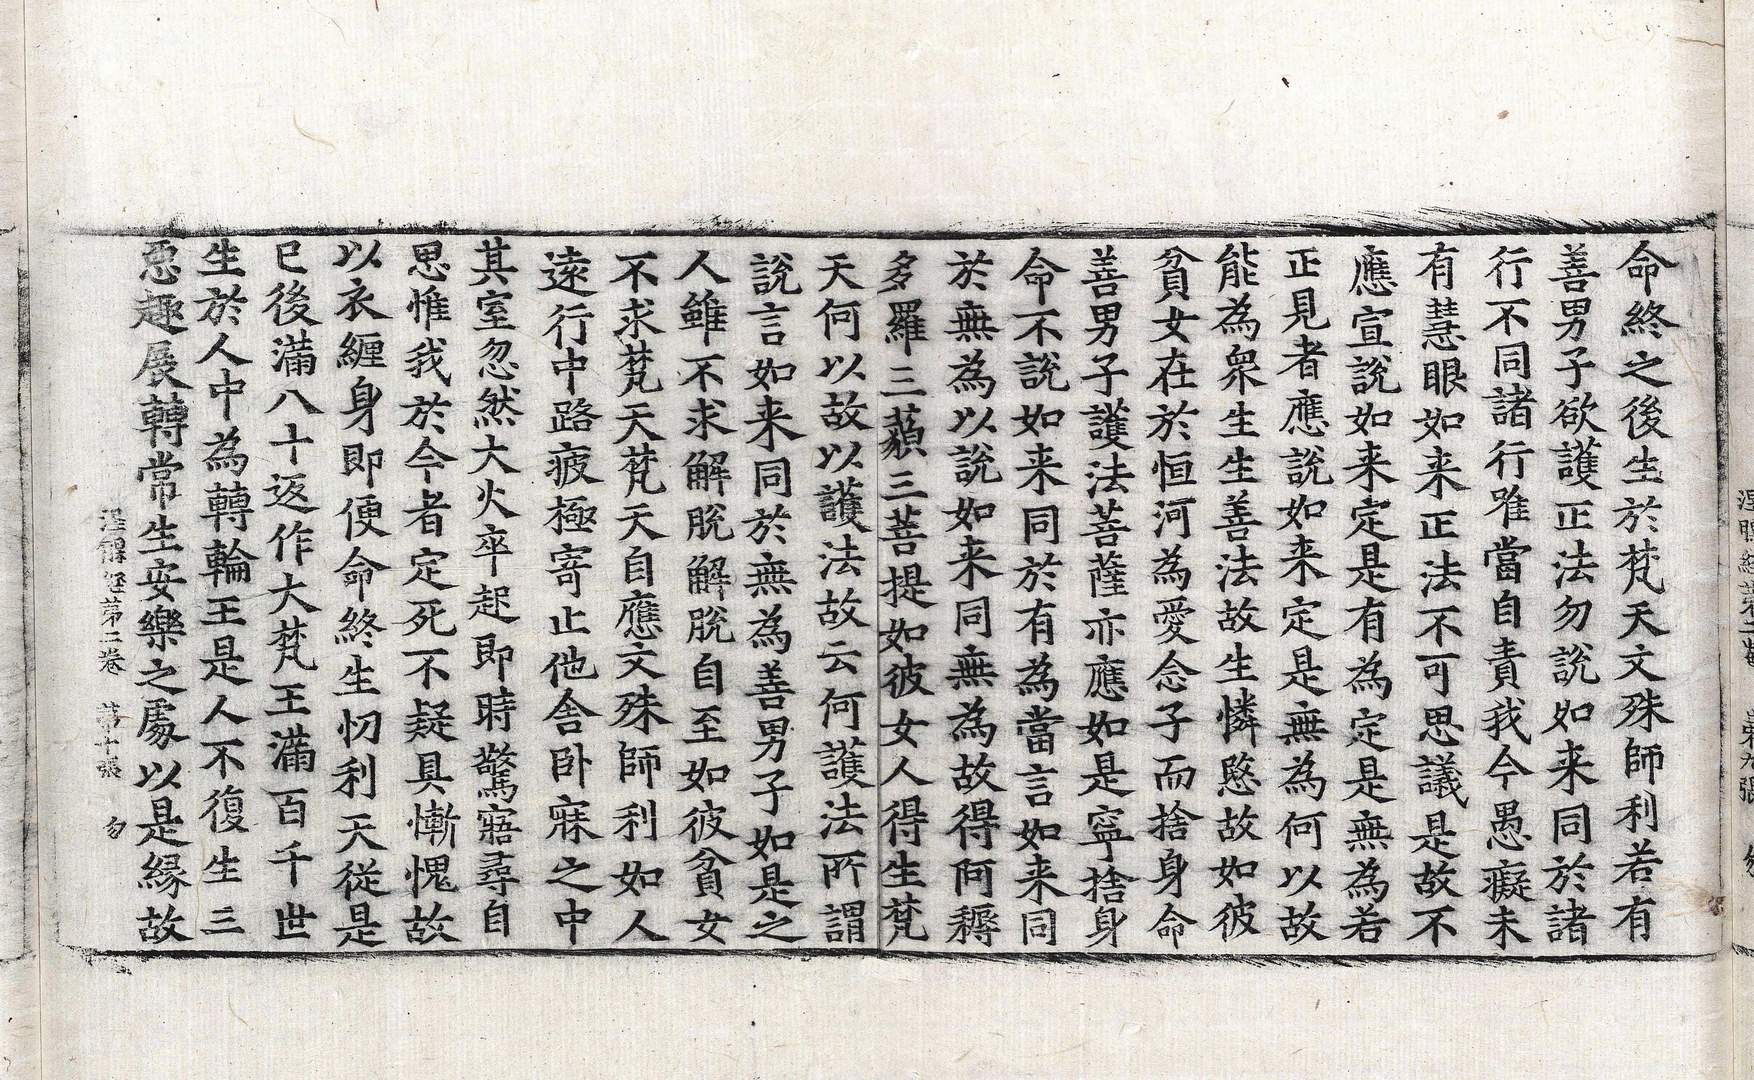 命終之後生於梵天文殊師利若有
善男子欲護正法勿說如来同於諸
行不同諸行唯當自責我今愚癡未
有慧眼如来正法不可思議是故不
應宣說如来定是有為定是無為若
正見者應說如来定是無為何以故
能為衆生生善法故生憐愍故如彼
貧女在於恒河為愛念子而捨身命
善男子護法菩薩亦應如是寧捨身
命不說如来同於有為當言如来同
於無為以說如来同無為故得阿耨
多羅三藐三菩提如彼女人得生梵
天何以故以護法故云何護法所謂
說言如来同於無為善男子如是之
人雖不求解脫解脫自至如彼貧女
不求梵天梵天自應文殊師利如人
遠行中路疲極寄止他舍卧寐之中
其室忽然大火卒起即時驚寤尋自
思惟我於今者定死不疑具慚愧故
以衣纏身即便命終生忉利天從是
已後滿八十返作大梵王滿百千世
生於人中為轉輪王是人不復生三
惡趣展轉常生安樂之處以是緣故
涅槃經第二卷 第十張 勿